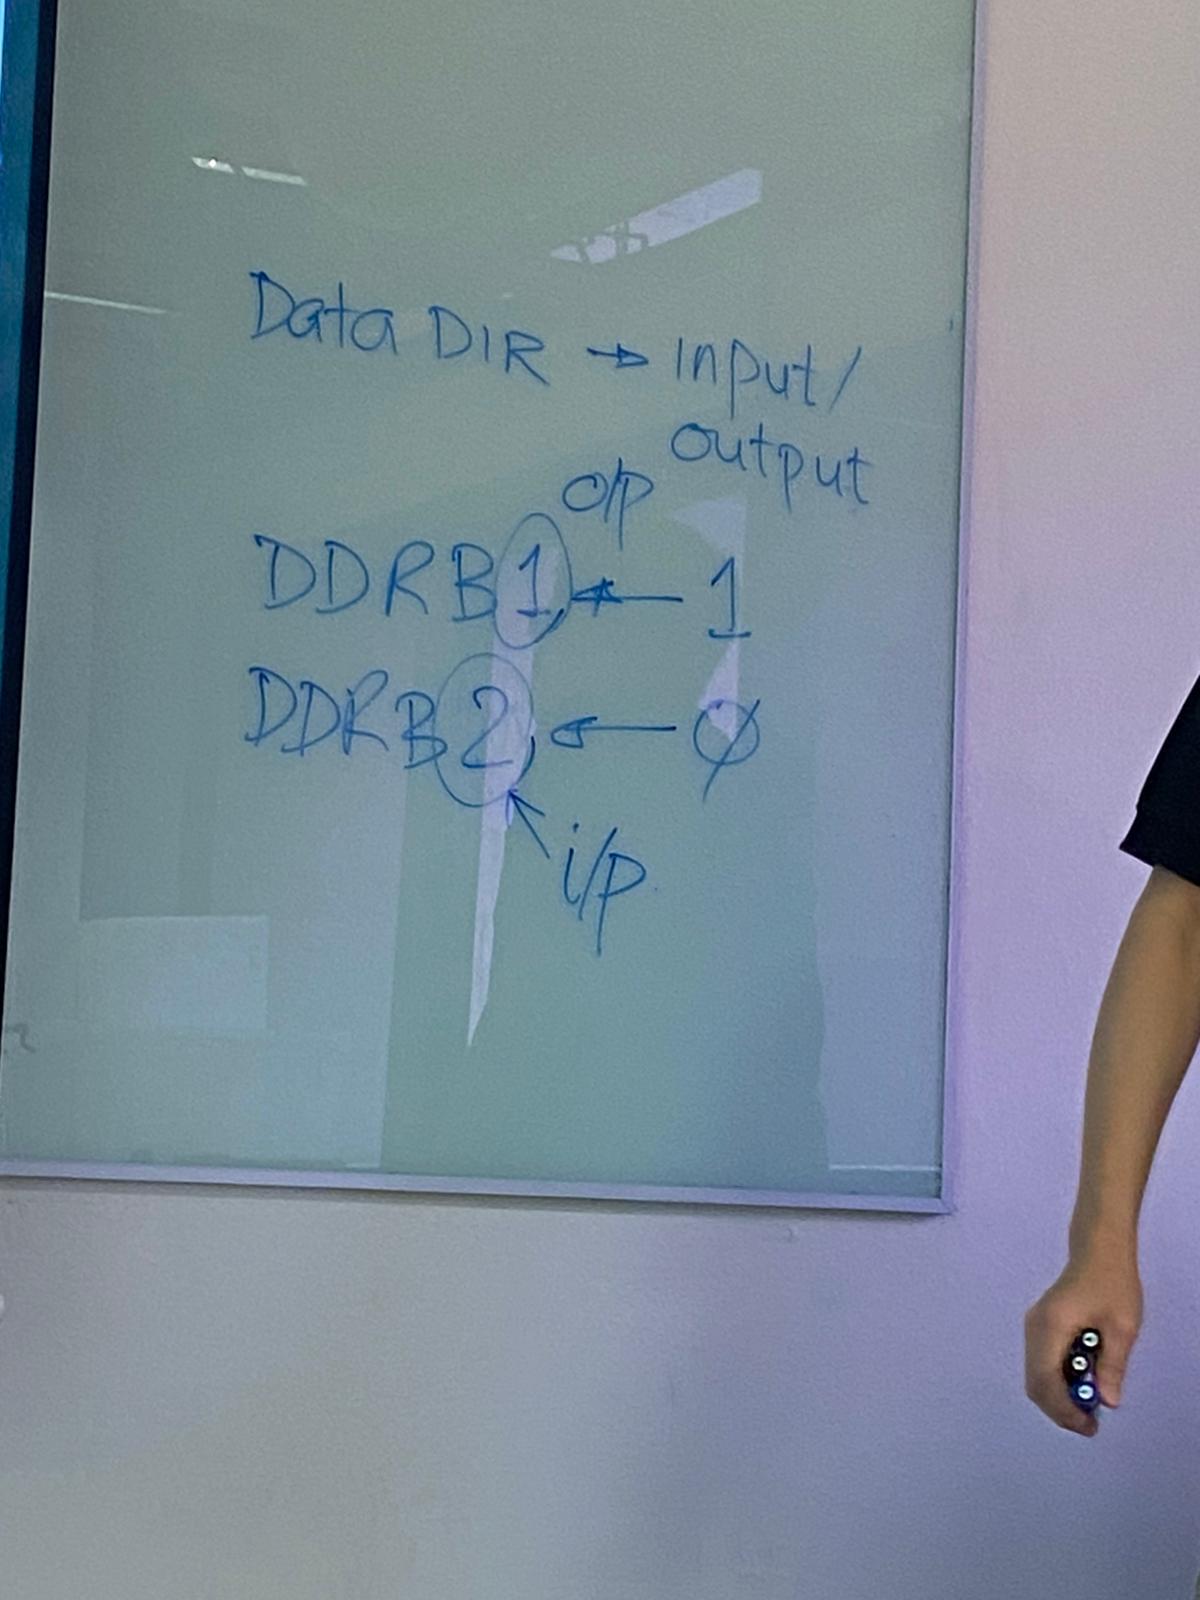 Data DIR → Input/
output
o/p
DDRB1 ← 1
DDRB2 ← Ø
i/p